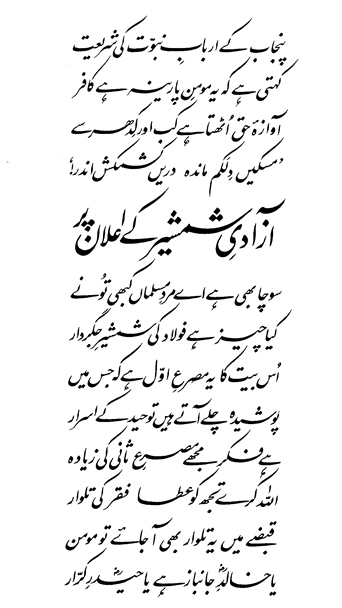 پنجاب کے اربابِ نبوّت کی شریعت
کہتی ہے کہ یہ مومنِ پارینہ ہے کافر
آوازۂ حق اُٹھتا ہے کب اور کدھر سے
'مسکیں دِلکم ماندہ دریں کشمکش اندر!'
آزادیِ شمشیر کے اعلان پر
سوچا بھی ہے اے مردِ مسلماں کبھی تُو نے
کیا چیز ہے فولاد کی شمشیرِ جگردار
اُس بیت کا یہ مصرعِ اوّل ہے کہ جس میں
پوشیدہ چلے آتے ہیں توحید کے اسرار
ہے فکر مجھے مصرعِ ثانی کی زیادہ
اللہ کرے تجھ کو عطا فقر کی تلوار
قبضے میں یہ تلوار بھی آجائے تو مومن
یا خالدِؓ جانباز ہے یا حیدرِؓ کرّار